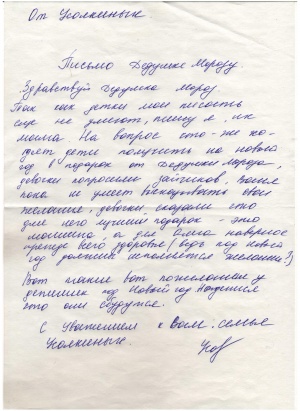 От Колкиных.
Письмо Дедушке Морозу.
Здравствуй Дедушка Мороз.
Так как детки мои писать
еще не умеют, пишу я, их
мама. На вопрос что-же хо-
дети получить на нового
год в подарок от Дедушки Мороза,
девочки попросили зайчиков,
пока не умеет высказывать свои
желание, девочки сказали что
для него лучший подарок - это
машина, а для
прежде всего здоровье (ведь под новый
год должны исполнятся желания?)
Вот такие вот пожелания у
под Новый год. Надеемся
что они сбудутся.
С Уважением к Вам. семья
Колкиных.